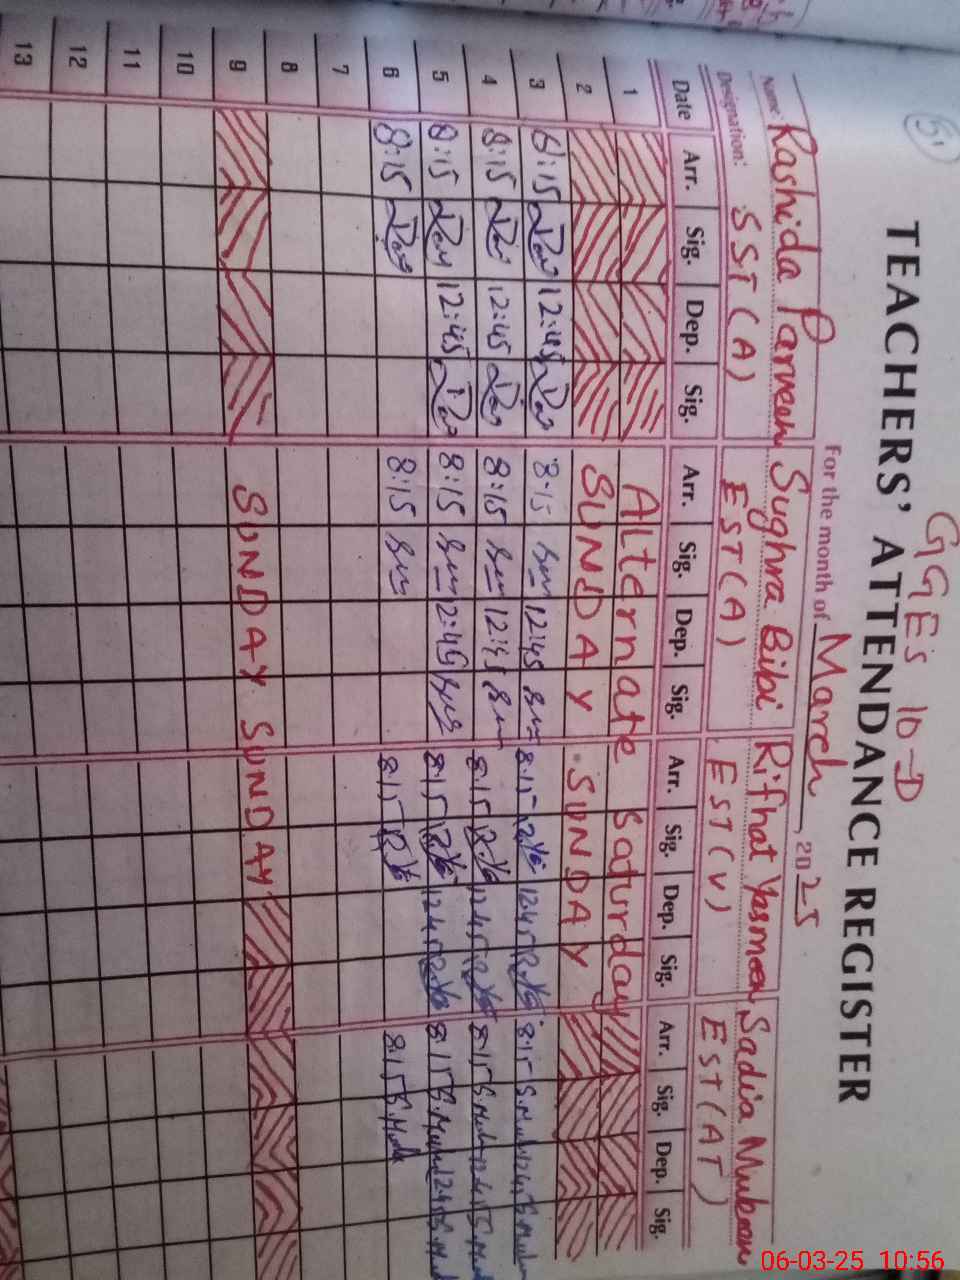 51
GGES 10-D
TEACHERS' ATTENDANCE REGISTER
For the month of March, 2025
Name: Rashida Parveen Sughra Bibi Rifhat Yasmeen Sadia
Designation: SST (A) EST (A) EST (V) EST (AT)
Date Arr. Sig. Dep. Sig. Arr. Sig. Dep. Sig. Arr. Sig. Dep. Sig. Arr. Sig. Dep. Sig.
1 Alternate Saturday
2 SUNDAY SUNDAY
3 8:15 12:45 8:15 12:45 8:15 1245 8:15 1245
4 8:15 12:45 8:15 12:45 8:15 1245 8:15 1245
5 8:15 12:45 8:15 12:45 8:15 1245 8:15 1245
6 8:15 8:15 8:15 8:15
7
8
9 SUNDAY SUNDAY
10
11
12
13
06-03-25 10:56